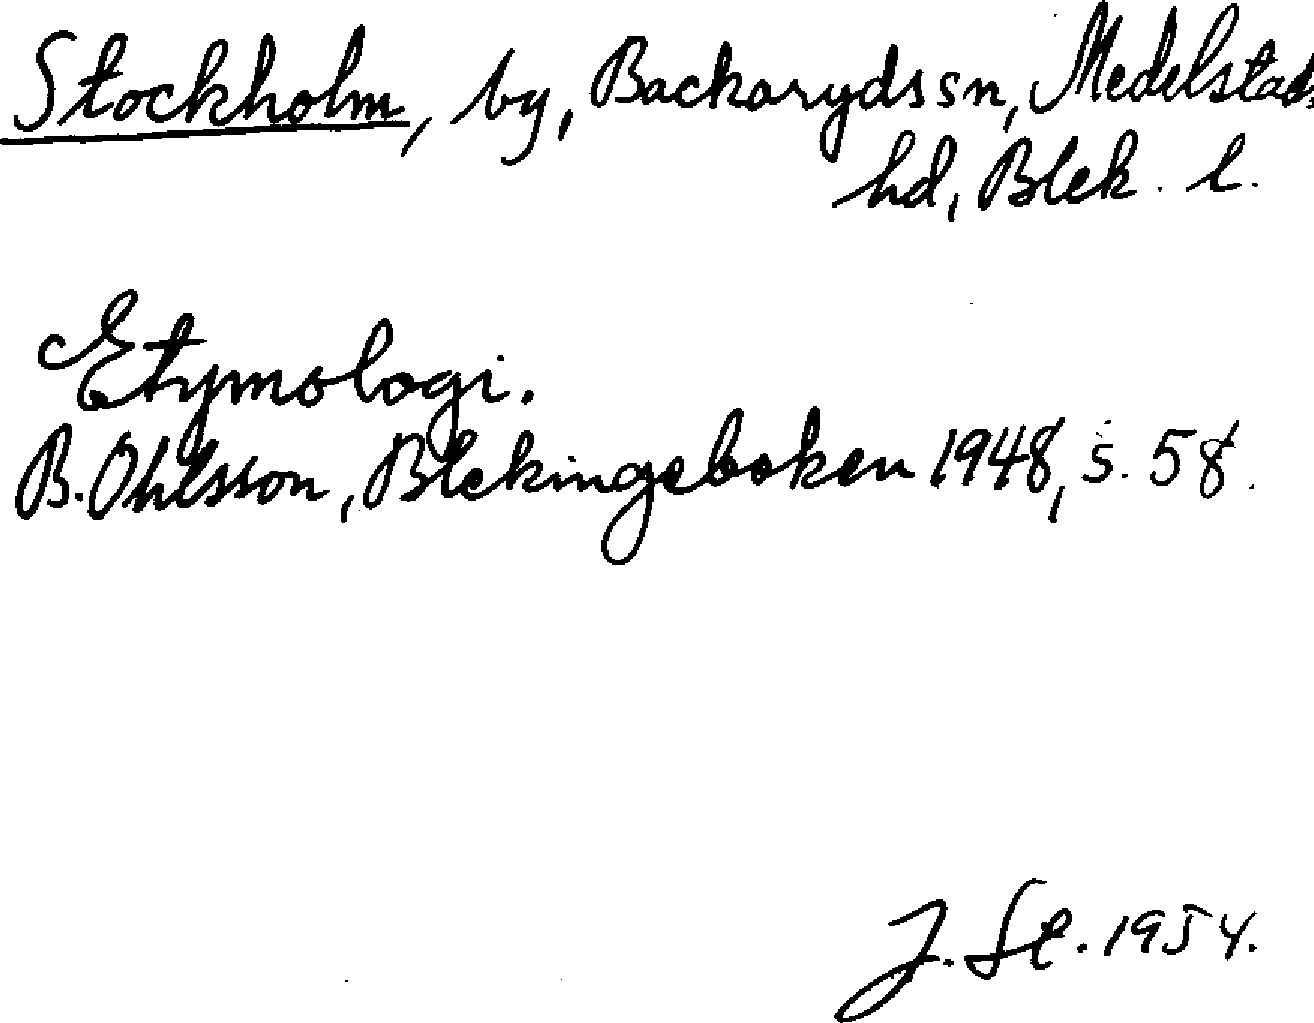 Stockholm, by, Backaryds sn, Medelstads
hd, Blek. l.
Etymologi.
B. Ohlsson, Blekingeboken 1948, s. 58.
J. Sl. 1954.